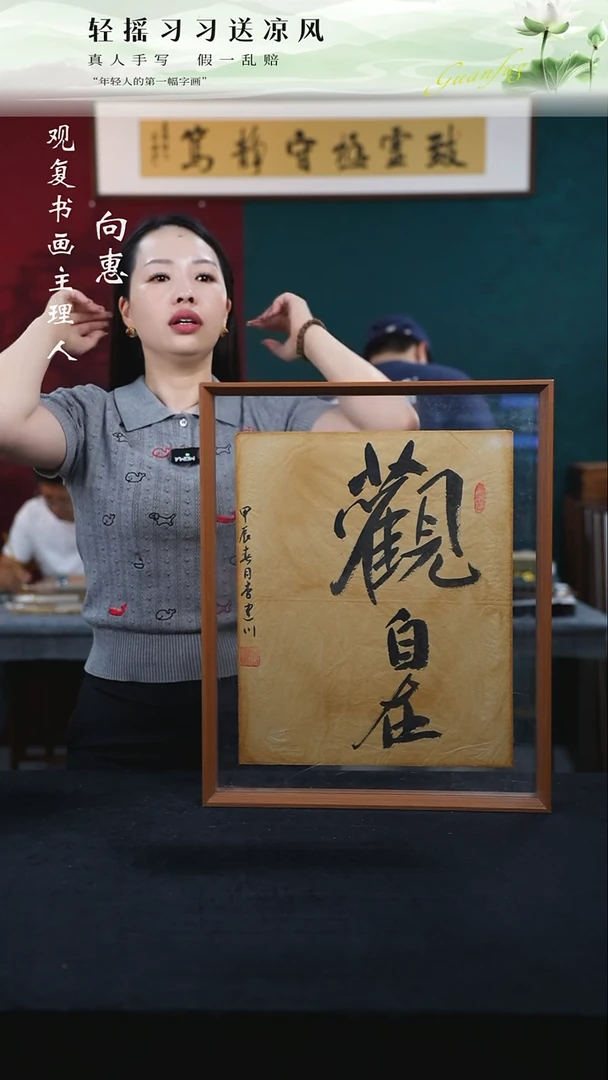 轻摇习习送凉风
真人手写 假一乱赔
“年轻人的第一幅字画”
Guanfu
致虚极守静笃
观复书画主理人
向惠
觀
自
在
甲辰春月李建川